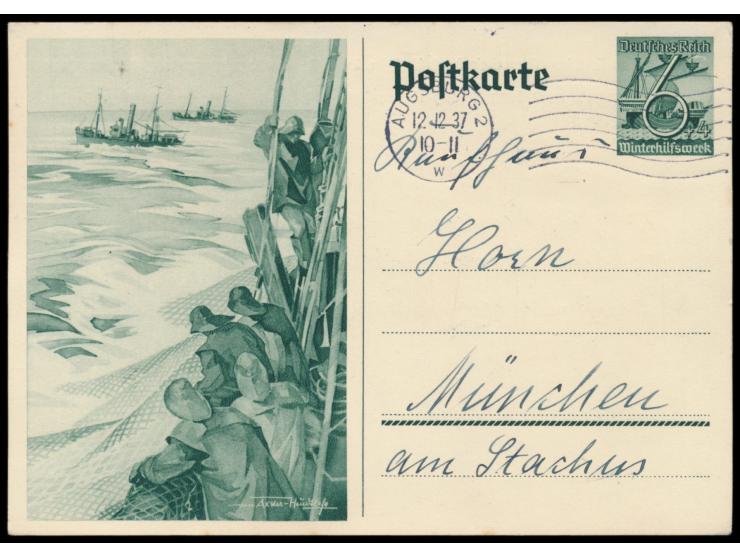 Postkarte
Deutsches Reich
6+4
Winterhilfswerk
AUGSBURG 2
12.12.37
10-11
w
Kaufhaus
Horn
München
am Stachus
Axter-Heudtlaß